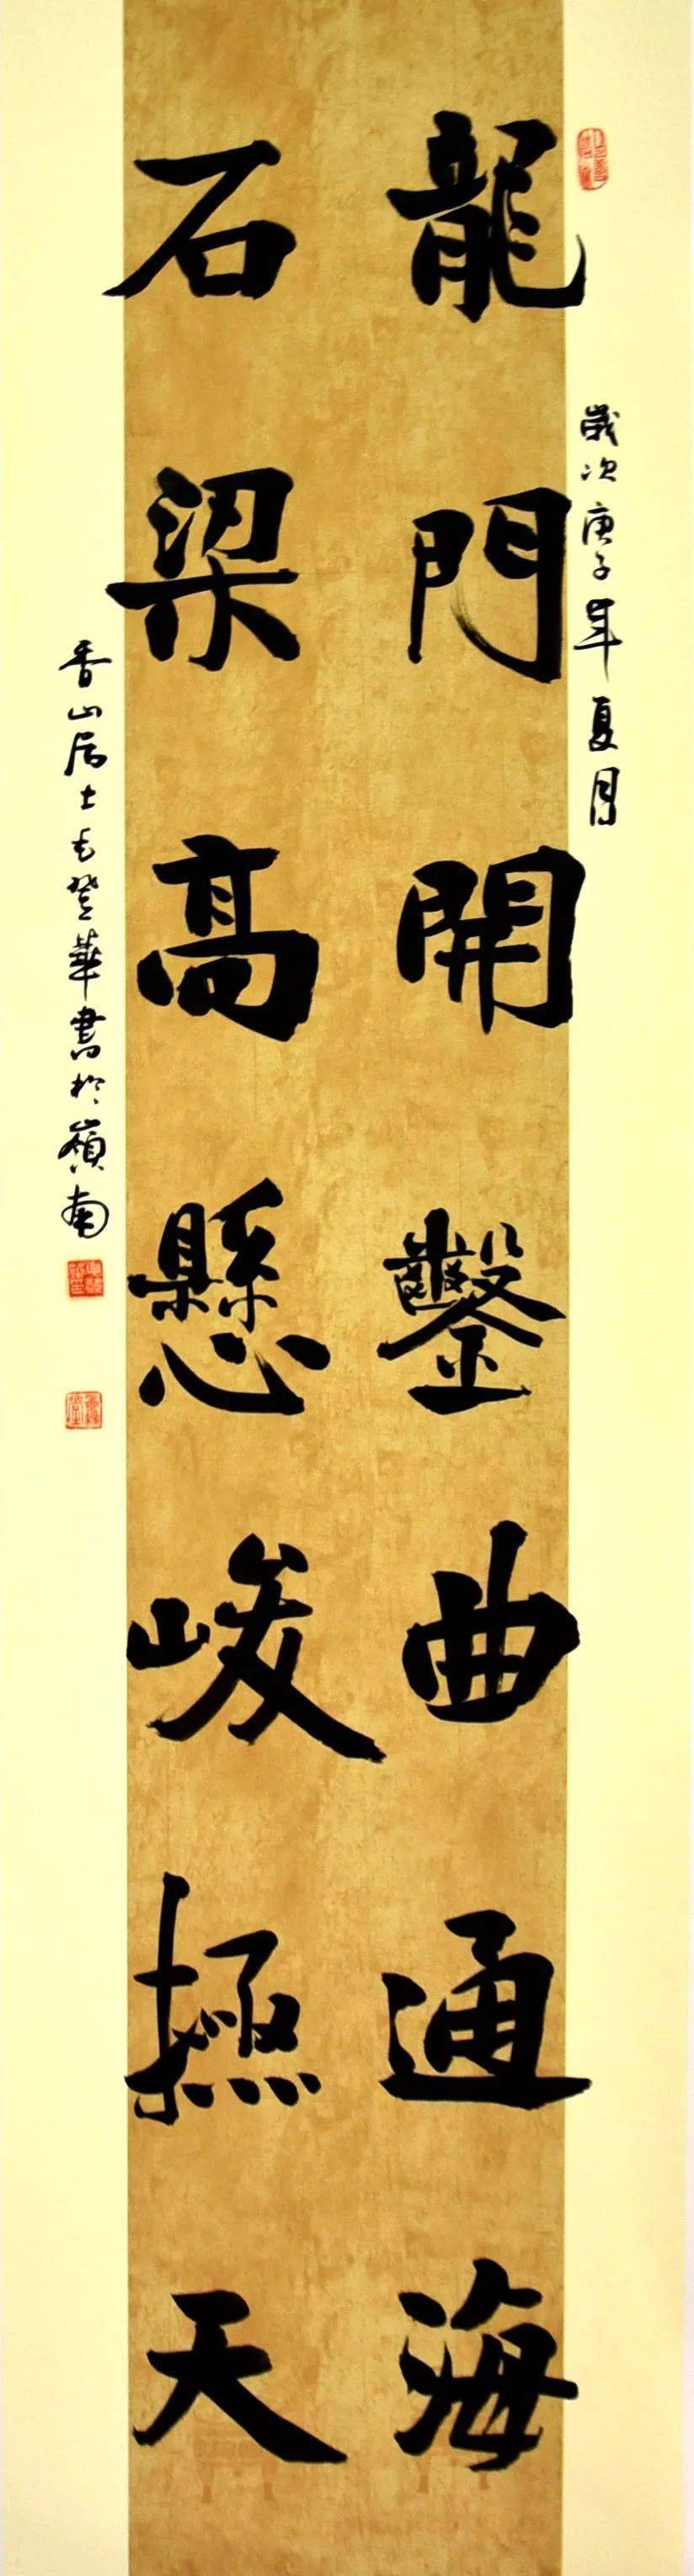 龍門開鑿曲通海
石梁高懸峻極天
歲次庚子年夏月
香山居士毛登華書於嶺南